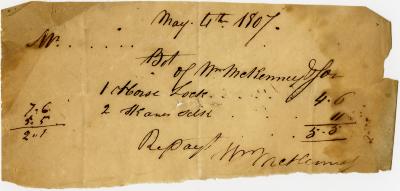 May 4th 1807.
Mr . . . . . .
Bot
of Wm McKenney & Son
1 Horse Lock . . . . 4.6
7.6 2 Skanes Silk . . . 11
5.5 5.5
2..1
Rec pay Wm McKenney